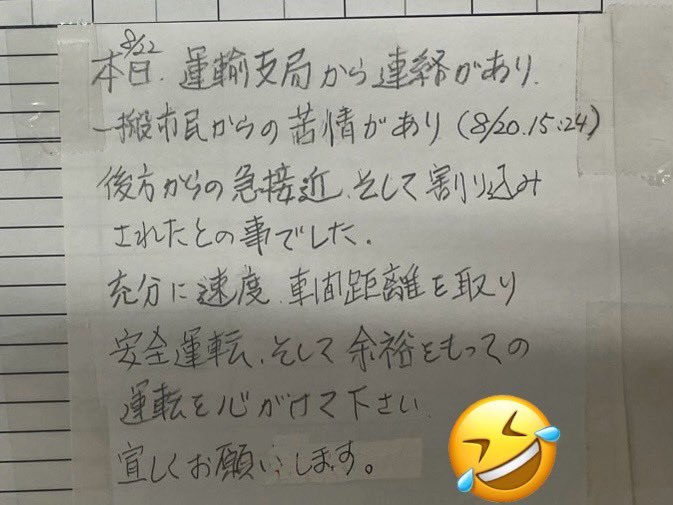 8/22
本日、運輸支局から連絡があり、
一般市民からの苦情があり(8/20.15:24)
後方からの急接近、そして割り込み
されたとの事でした。
充分に速度、車間距離を取り
安全運転、そして余裕をもっての
運転を心がけて下さい。
宜しくお願いします。